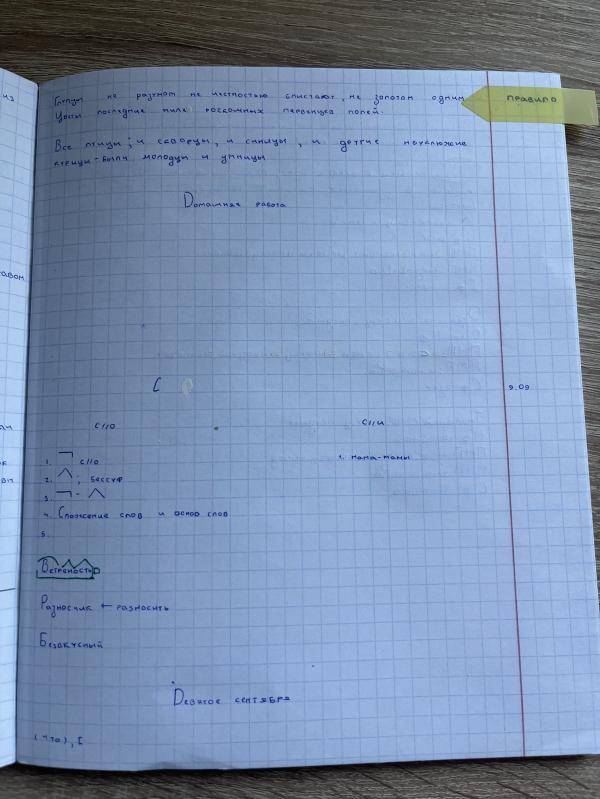 из
правило
не разумом не местностью блистают, не золотом одним
Цветы последние милей роскошных первенцев полей.
Все птицы: и скворцы, и синицы, и другие неуклюжие
птицы-были молодцы и умницы
Домашняя работа
авом
[
9.09
С//О
С//И
1. ¬ С//О
1. мама-мамы
2. ^, бессуф
3. ¬ - ^
4. Сложение слов и основ слов
5.
Ветреность
Разносчик ← разносить
Безвкусный
Девятое сентября
(что), [